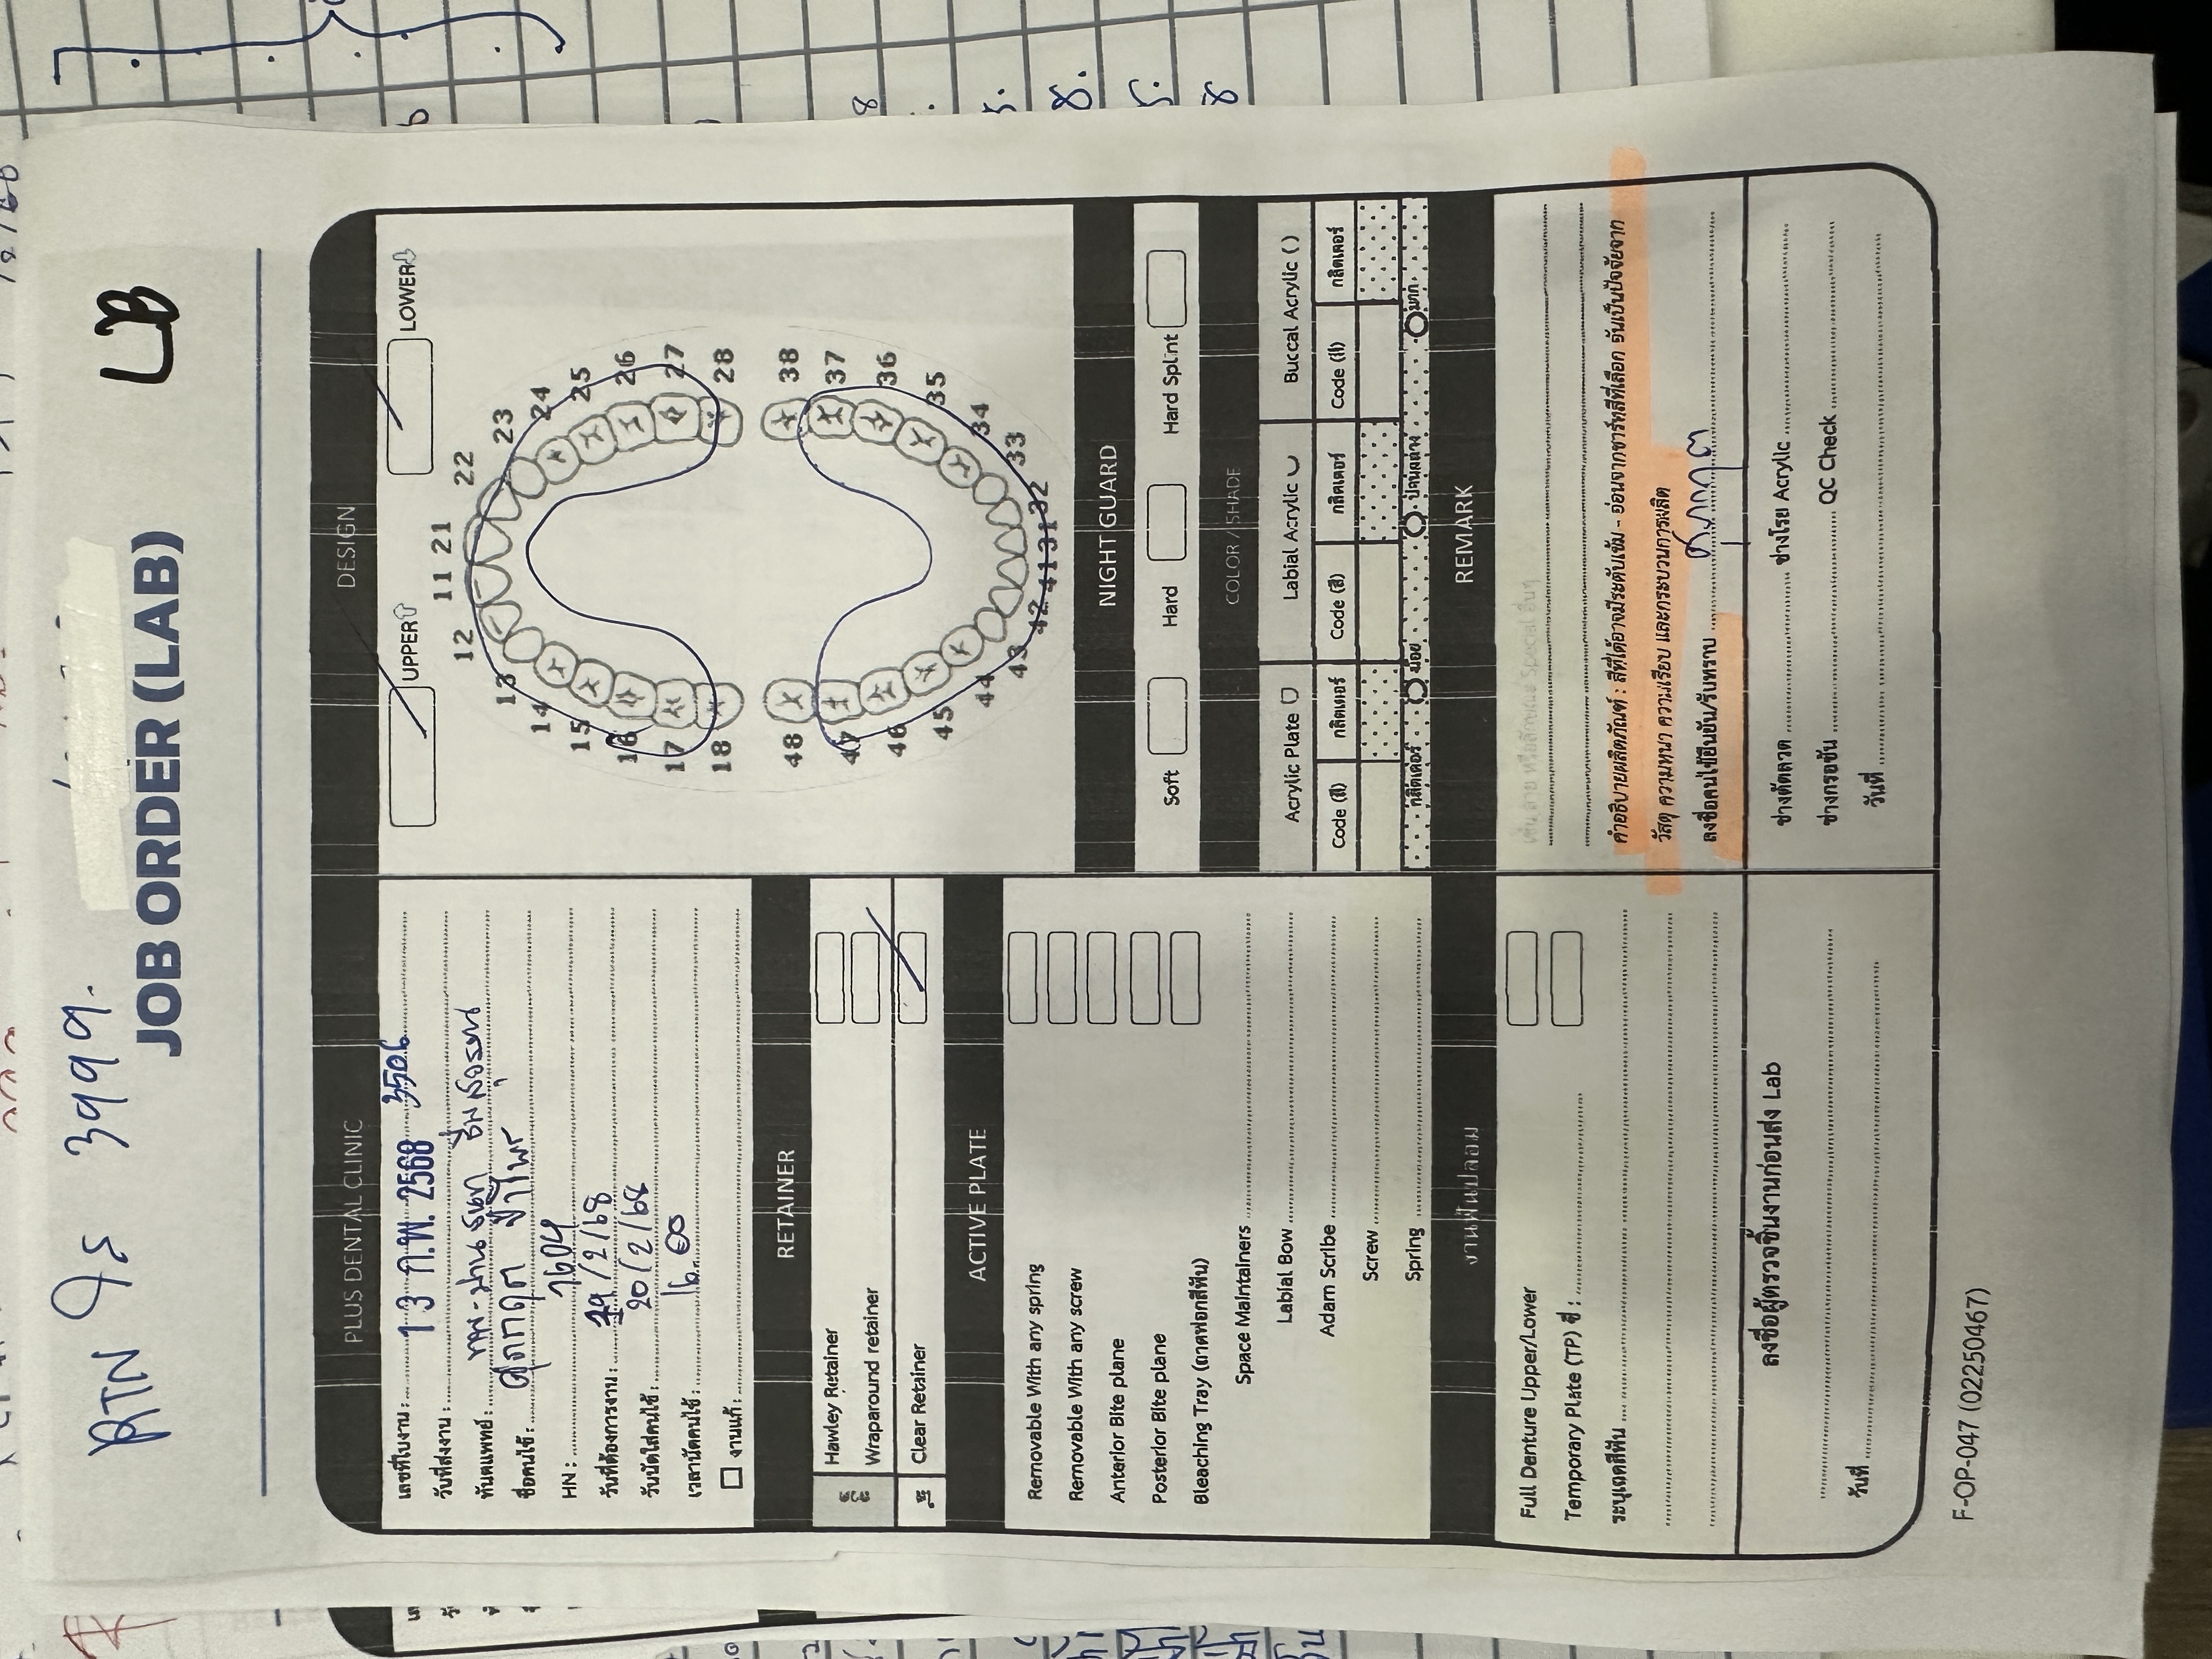 RTN ใส 3999.
LB
JOB ORDER (LAB)
PLUS DENTAL CLINIC
เลขที่ใบงาน : 3506
วันที่ส่งงาน : 13 ก.พ. 2568
ทันตแพทย์ :
ชื่อคนไข้ : ศุภกฤต
HN : 7604
วันที่ต้องการงาน : 19/2/68
วันนัดใส่คนไข้ : 20/2/68
เวลานัดคนไข้ : 16.00
งานแก้ :
RETAINER
ลวด
Hawley Retainer
Wraparound retainer
ใส
Clear Retainer
ACTIVE PLATE
Removable With any spring
Removable With any screw
Anterior Bite plane
Posterior Bite plane
Bleaching Tray (ถาดฟอกสีฟัน)
Space Maintainers
Labial Bow
Adam Scribe
Screw
Spring
งานฟันปลอม
Full Denture Upper/Lower
Temporary Plate (TP) ซี่ :
ระบุเฉดสีฟัน
ลงชื่อผู้ตรวจชิ้นงานก่อนส่ง Lab
วันที่
DESIGN
UPPER LOWER
11 21
12 22
13 23
14 24
15 25
16 26
17 27
18 28
48 38
47 37
46 36
45 35
44 34
43 33
42 41 31 32
NIGHT GUARD
Soft Hard Hard Splint
COLOR / SHADE
Acrylic Plate Labial Acrylic Buccal Acrylic ( )
Code (สี) กลิตเตอร์ Code (สี) กลิตเตอร์ Code (สี) กลิตเตอร์
กลิตเตอร์ น้อย ปานกลาง มาก
REMARK
เช่น ลาย หรือลักษณะ Special อื่นๆ
คำอธิบายผลิตภัณฑ์ : สีที่ได้อาจมีระดับเข้ม - อ่อนจากชาร์ทสีที่เลือก อันเป็นปัจจัยจาก
วัสดุ ความหนา ความเรียบ และกระบวนการผลิต
ลงชื่อคนไข้ยืนยัน/รับทราบ ศุภกฤต
ช่างดัดลวด ช่างโรย Acrylic
ช่างกรอขัน QC Check
วันที่
F-OP-047 (02250467)